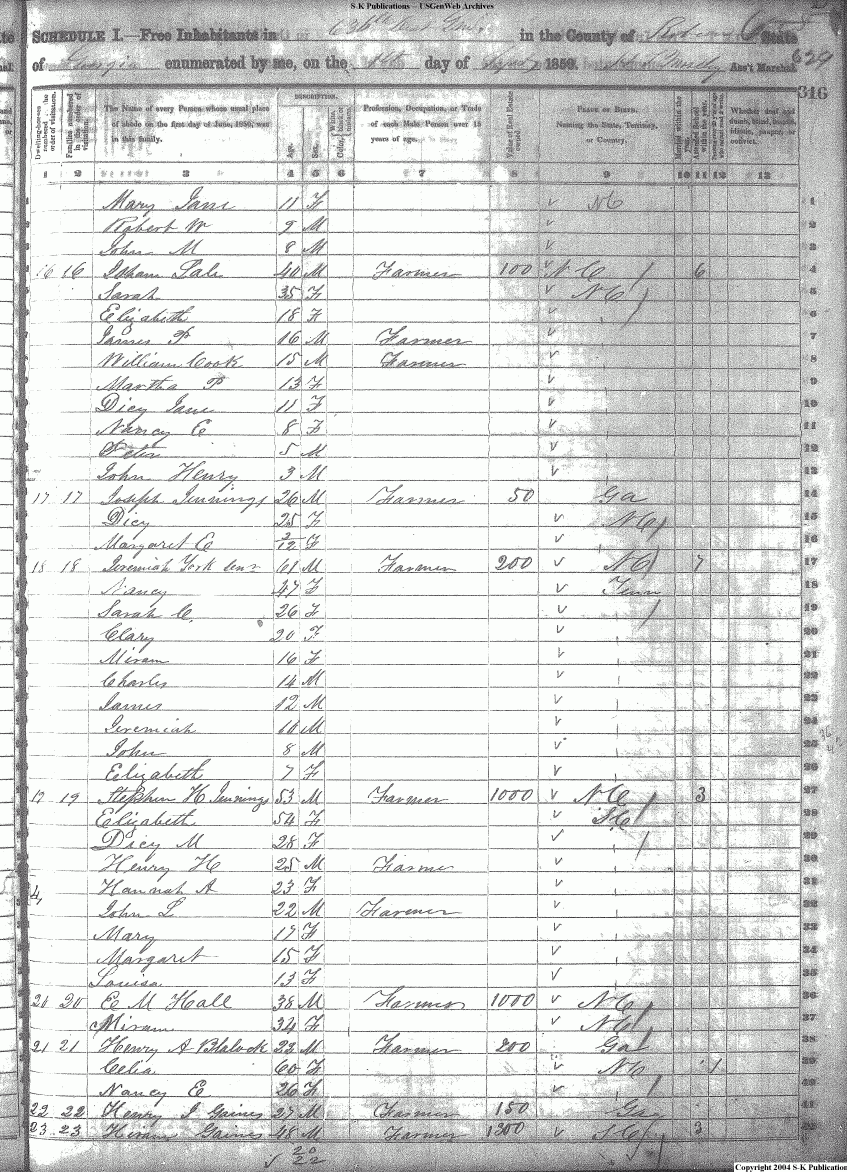 S-K Publications – USGenWeb Archives
SCHEDULE I.—Free Inhabitants in 636th in the County of State
of Georgia enumerated by me, on the day of 1850. Ass't Marshal.
629
316
Dwelling-houses numbered in the order of visitation.
Families numbered in the order of visitation.
The Name of every Person whose usual place of abode on the first day of June, 1850, was in this family.
DESCRIPTION.
Age.
Sex.
Profession, Occupation, or Trade of each Male Person over 15 years of age.
Value of Real Estate owned.
PLACE OF BIRTH.
Naming the State, Territory, or Country.
Married within the year.
Attended School within the year.
Whether deaf and dumb, blind, insane, idiotic, pauper, or convict.
1 2 3 4 5 6 7 8 9 10 11 12 13
1 Mary Jane 11 F v NC 1
2 Robert W 9 M v 2
3 John M 8 M v 3
4 16 16 Sale 40 M Farmer 100 v N C 6 4
5 Sarah 35 F v NC 5
6 Elizabeth 18 F v 6
7 James P 16 M Farmer v 7
8 William Cook 15 M Farmer v 8
9 Martha P 13 F v 9
10 Dicy Jane 11 F v 10
11 Nancy E 8 F v 11
12 Peter 5 M v 12
13 John Henry 3 M v 13
17 17 Joseph Jennings 26 M Farmer 50 Ga 14
Dicy 25 F v NC 15
Margaret E 2/12 F v 16
18 18 Jeremiah York Senr 61 M Farmer 200 v NC 7 17
Nancy 47 F v Tenn 18
Sarah C. 26 F v 19
Clary 20 F v 20
Miram 16 F v 21
Charles 14 M v 22
James 12 M v 23
Jeremiah 10 M v 24
John 8 M v 25
Elizabeth 7 F v 26
19 19 Stephen H Jennings 53 M Farmer 1000 v NC 3 27
Elizabeth 54 F v SC 28
Dicy M 28 F v 29
Henry H 25 M Farme v 30
Hannah A 23 F v 31
John L 22 M Farmer v 32
Mary 17 F v 33
Margaret 15 F v 34
Louisa 13 F v 35
20 20 E M Hall 38 M Farmer 1000 v NC 36
Miram 34 F v NC 37
21 21 Henry A Blalock 22 M Farmer 200 Ga 38
Celia 60 F v NC 1 39
Nancy E 26 F v 40
22 22 Henry J Gaines 27 M Farmer 150 Ga 41
23 23 Hiram Gaines 48 M Farmer 1300 v SC 3 42
20
22
Copyright 2004 S-K Publications